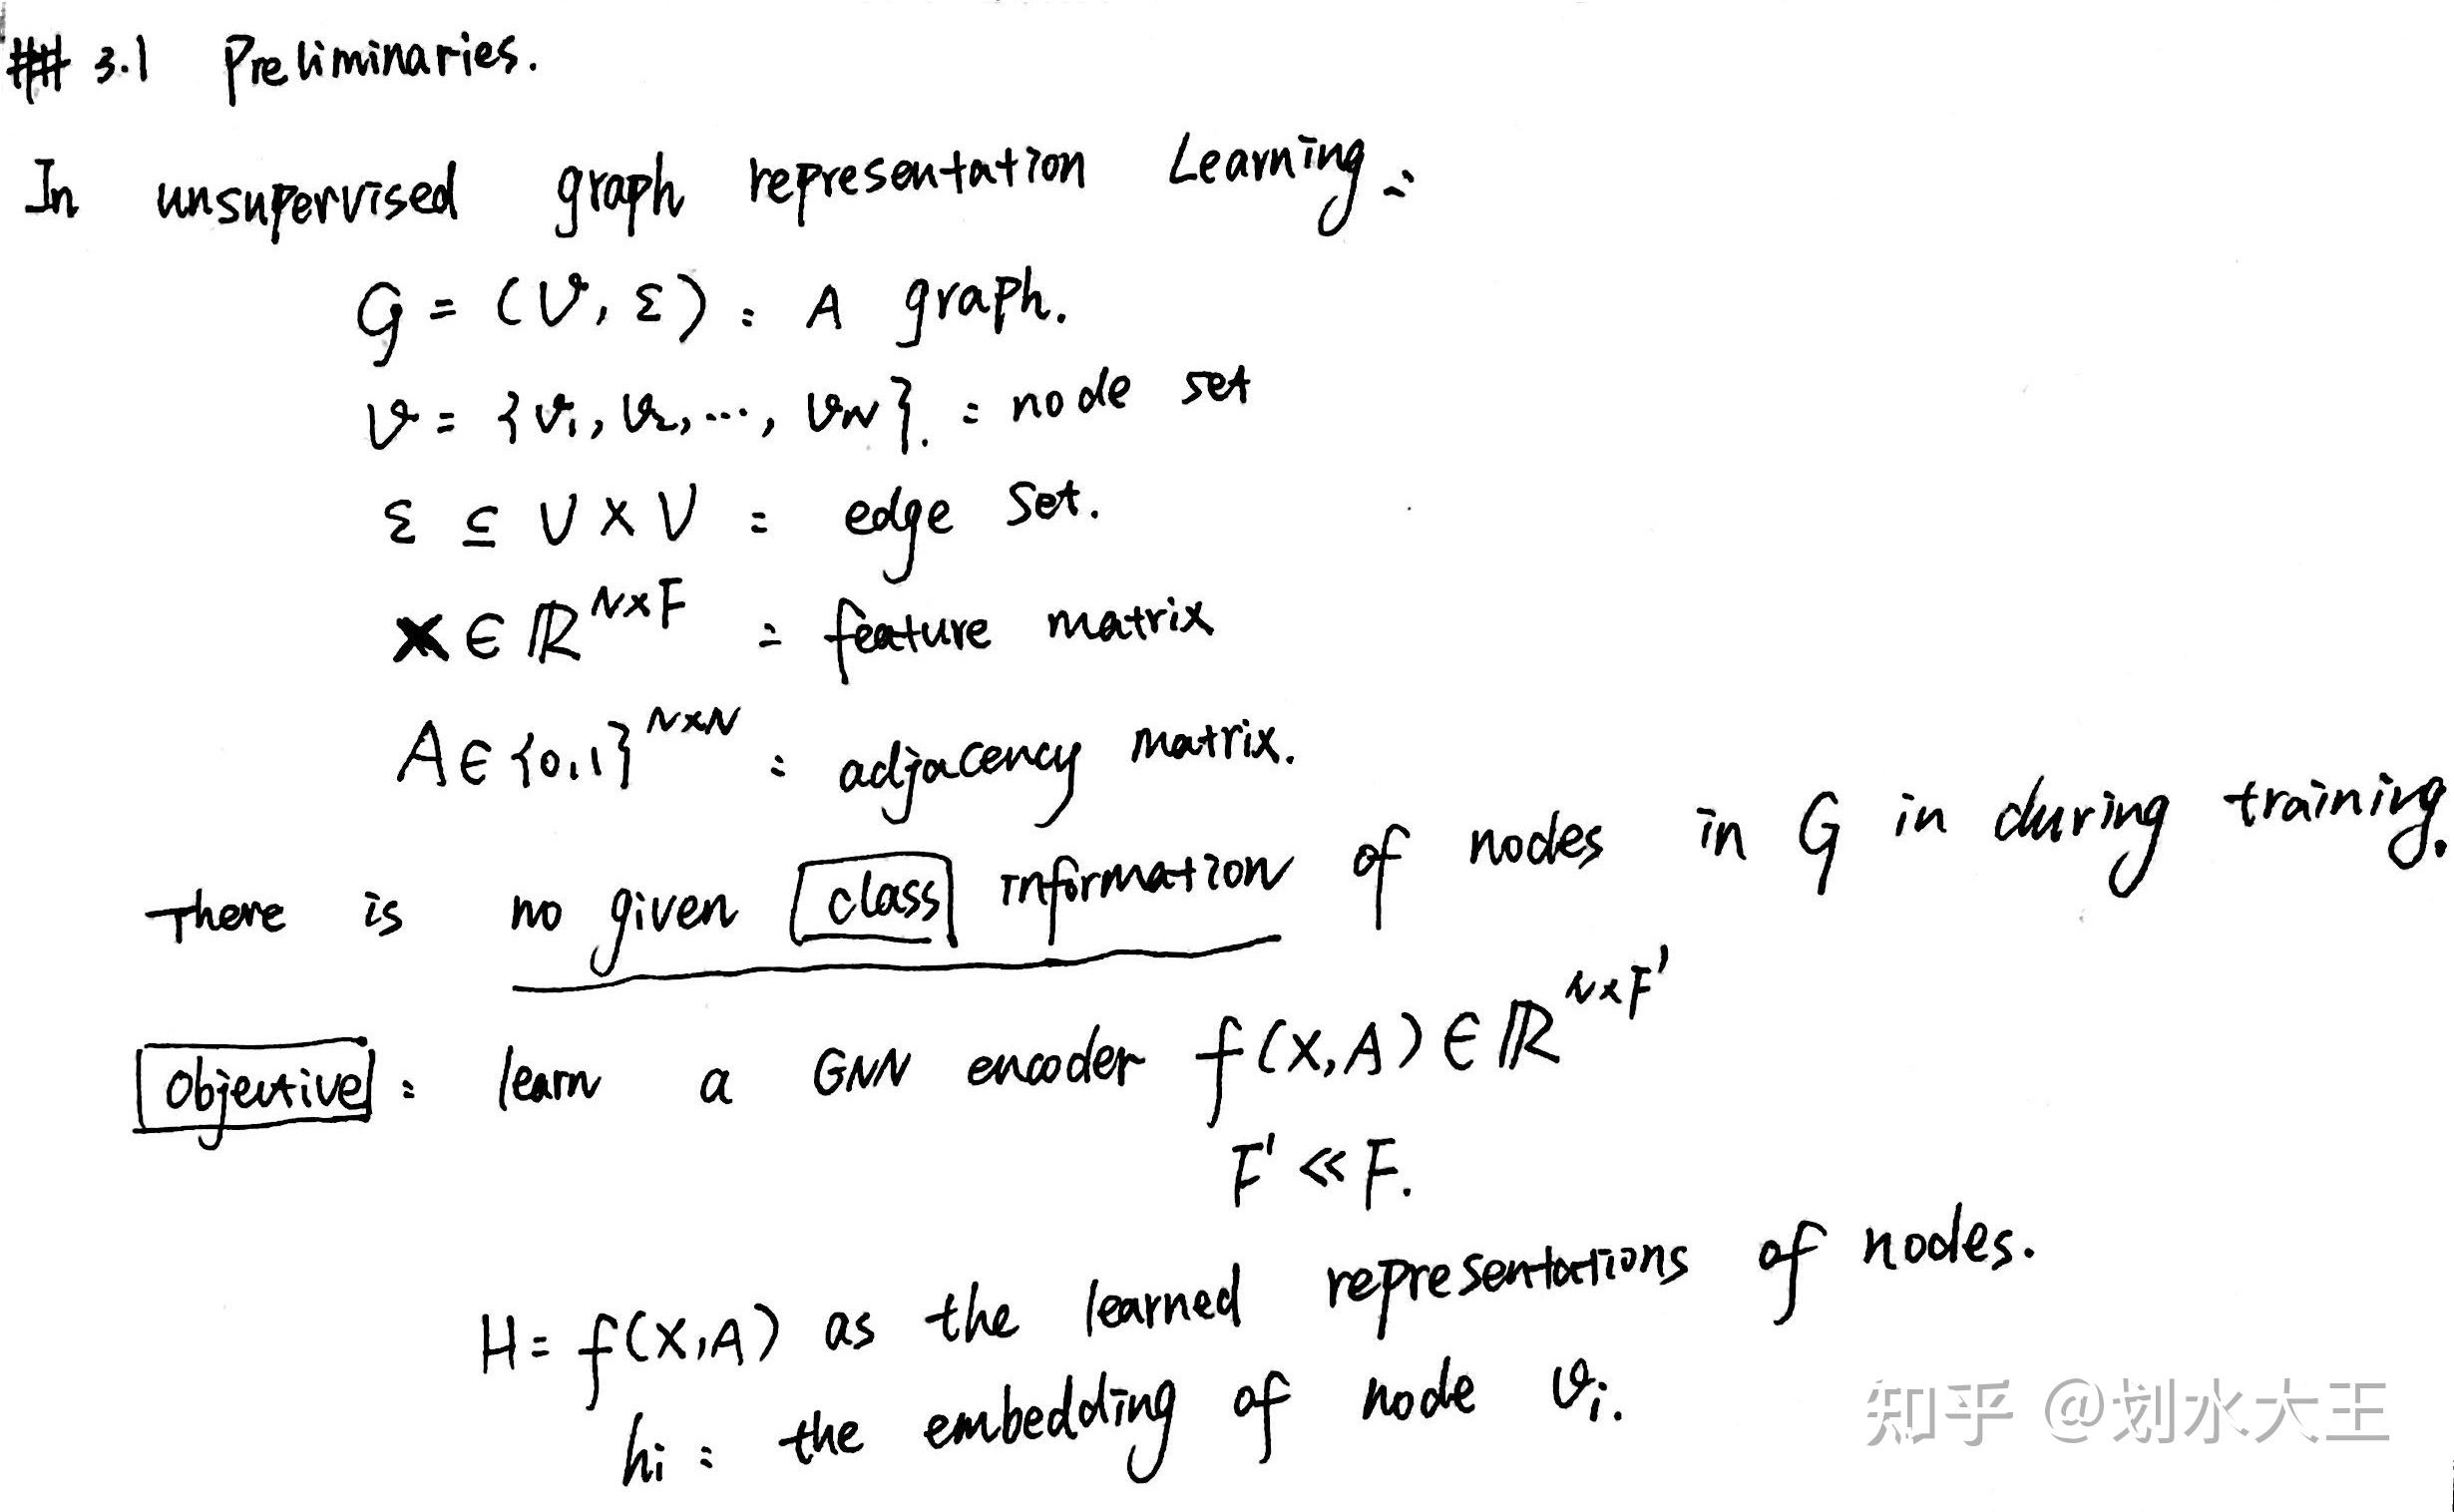 ## 3.1 Preliminaries.
In unsupervised graph representation Learning:
G = (V, ε): A graph.
V = {v1, v2, ..., vN}. : node set
ε ⊆ V × V : edge set.
X ∈ ℝ^{N×F} : feature matrix
A ∈ {0,1}^{N×N} : adjacency matrix.
There is no given class information of nodes in G in during training.
Objective: learn a GNN encoder f(X,A) ∈ ℝ^{N×F'}
F' ≪ F.
H = f(X,A) as the learned representations of nodes.
hi: the embedding of node vi.
知乎 @划水大王